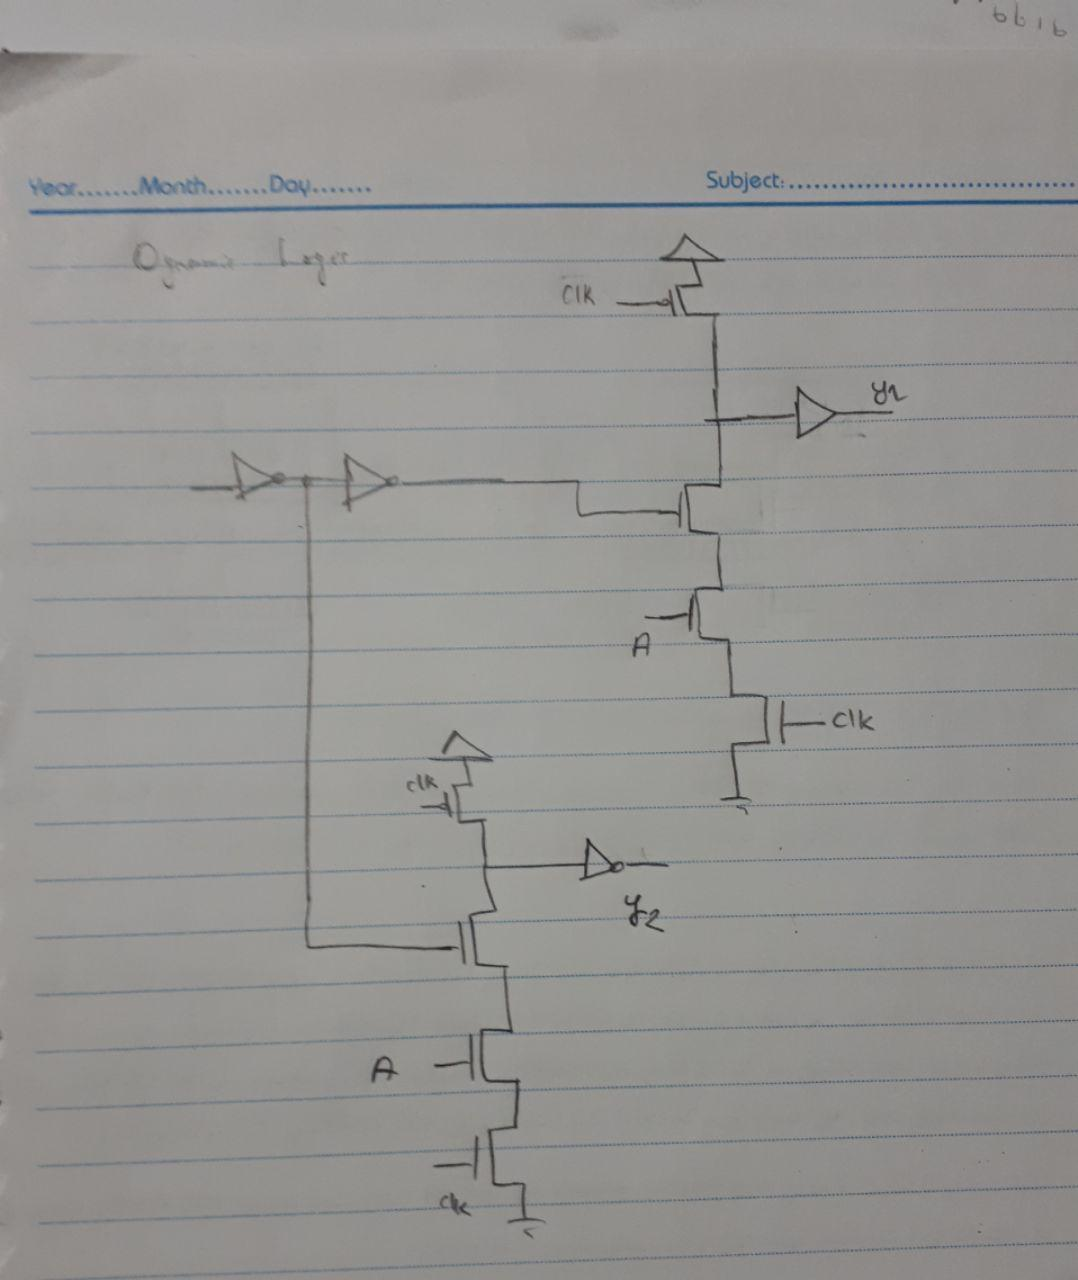 6616
Year.......Month.......Day.......
Subject:..................................
Dynamic Logic
Clk
y1
A
Clk
clk
y2
A
Clk